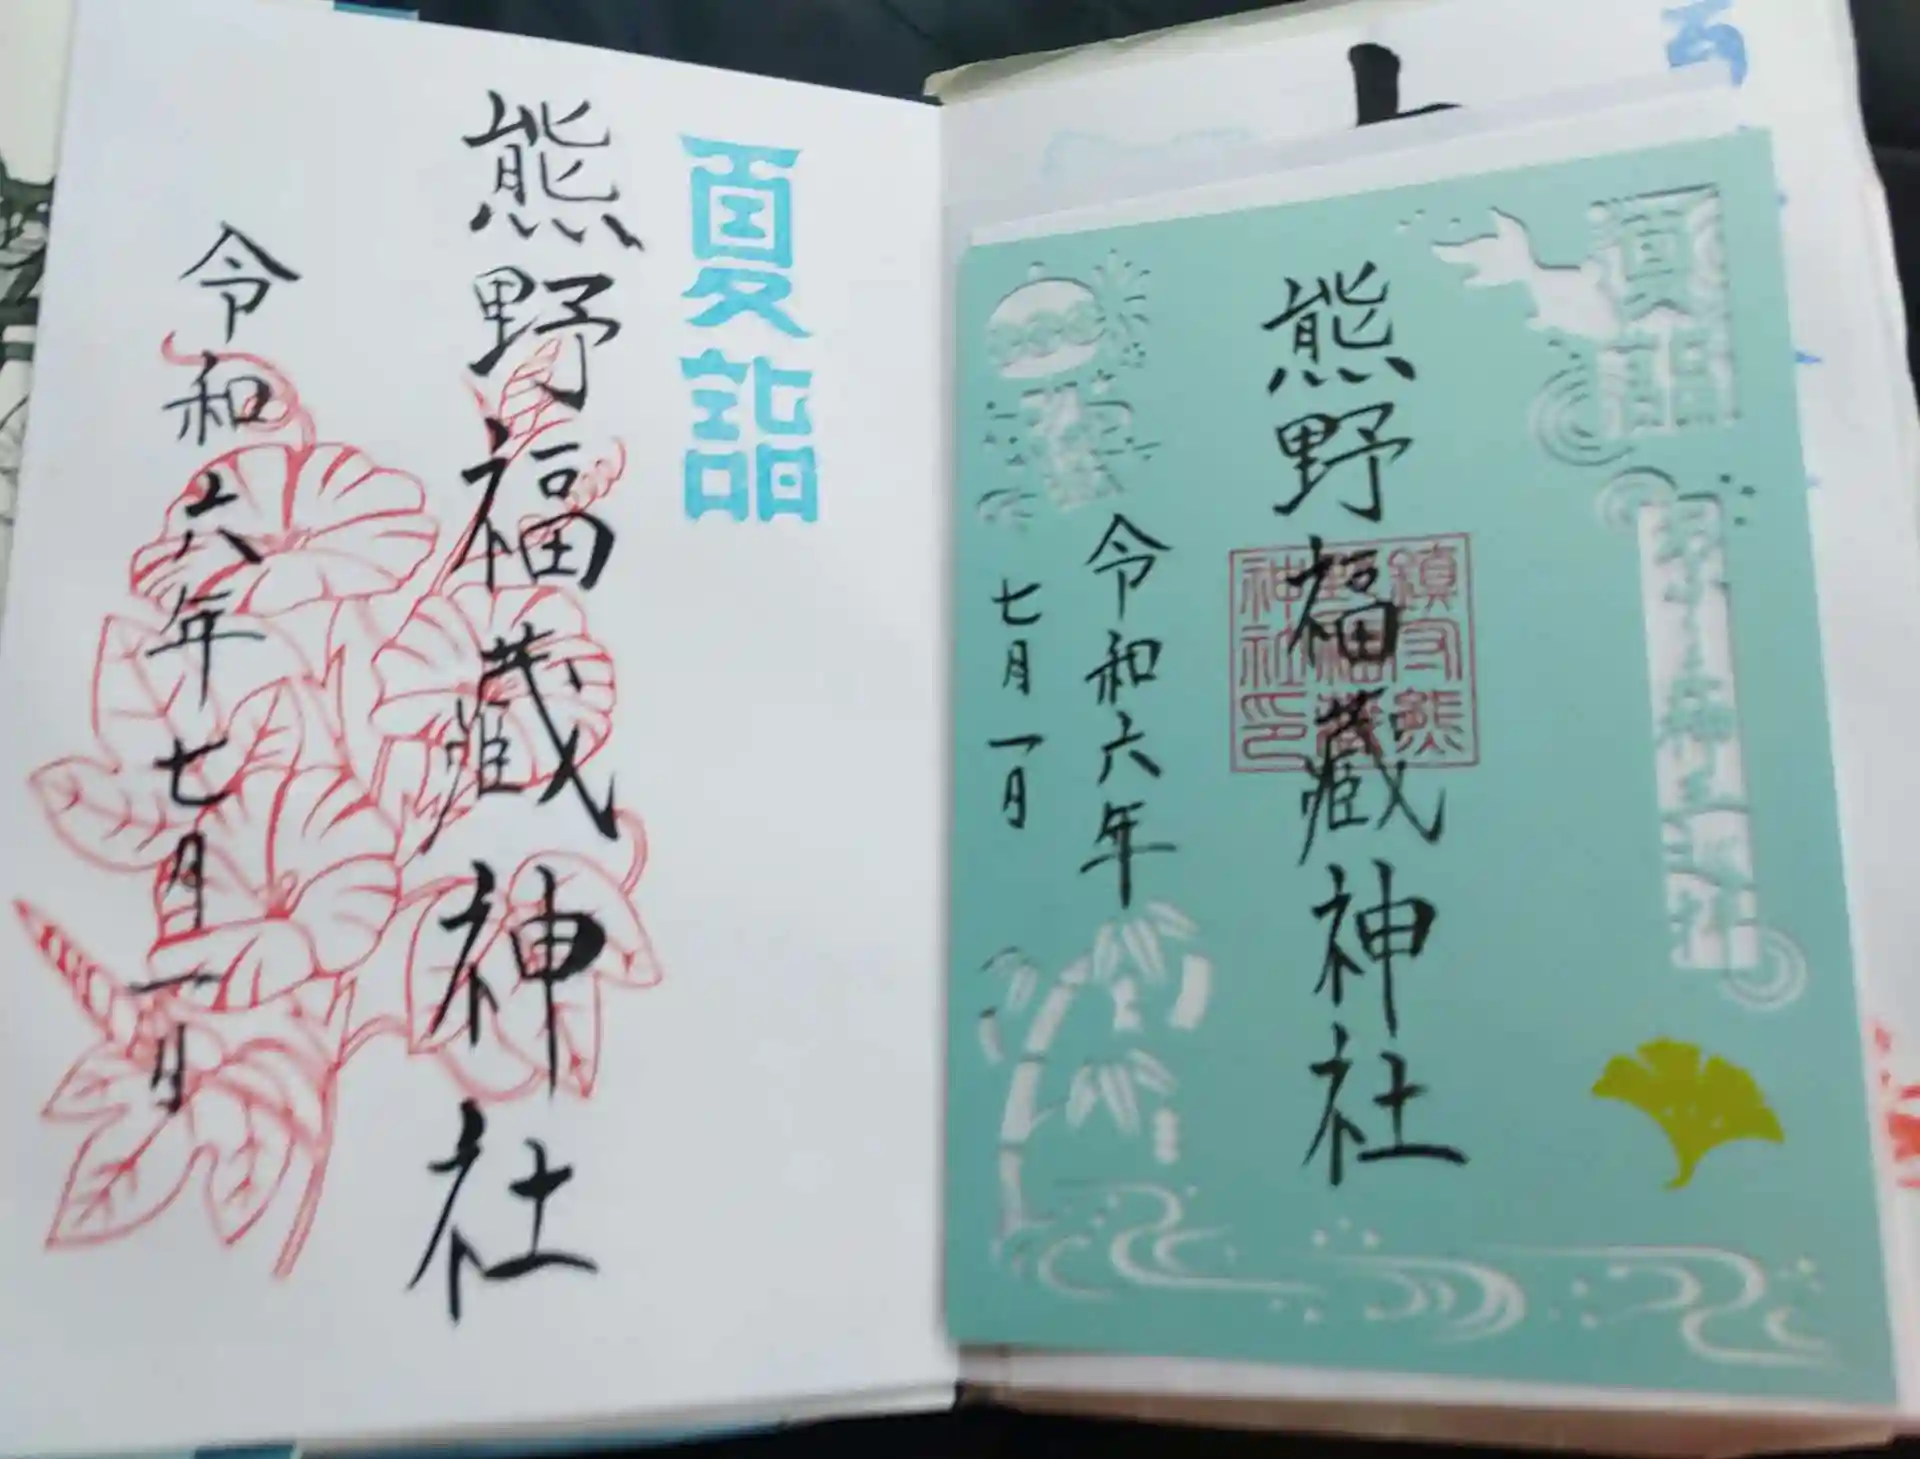 夏詣
熊野福藏神社
令和六年七月一日
夏詣
熊野福藏神社
鎮守熊野福藏神社印
令和六年
七月一日